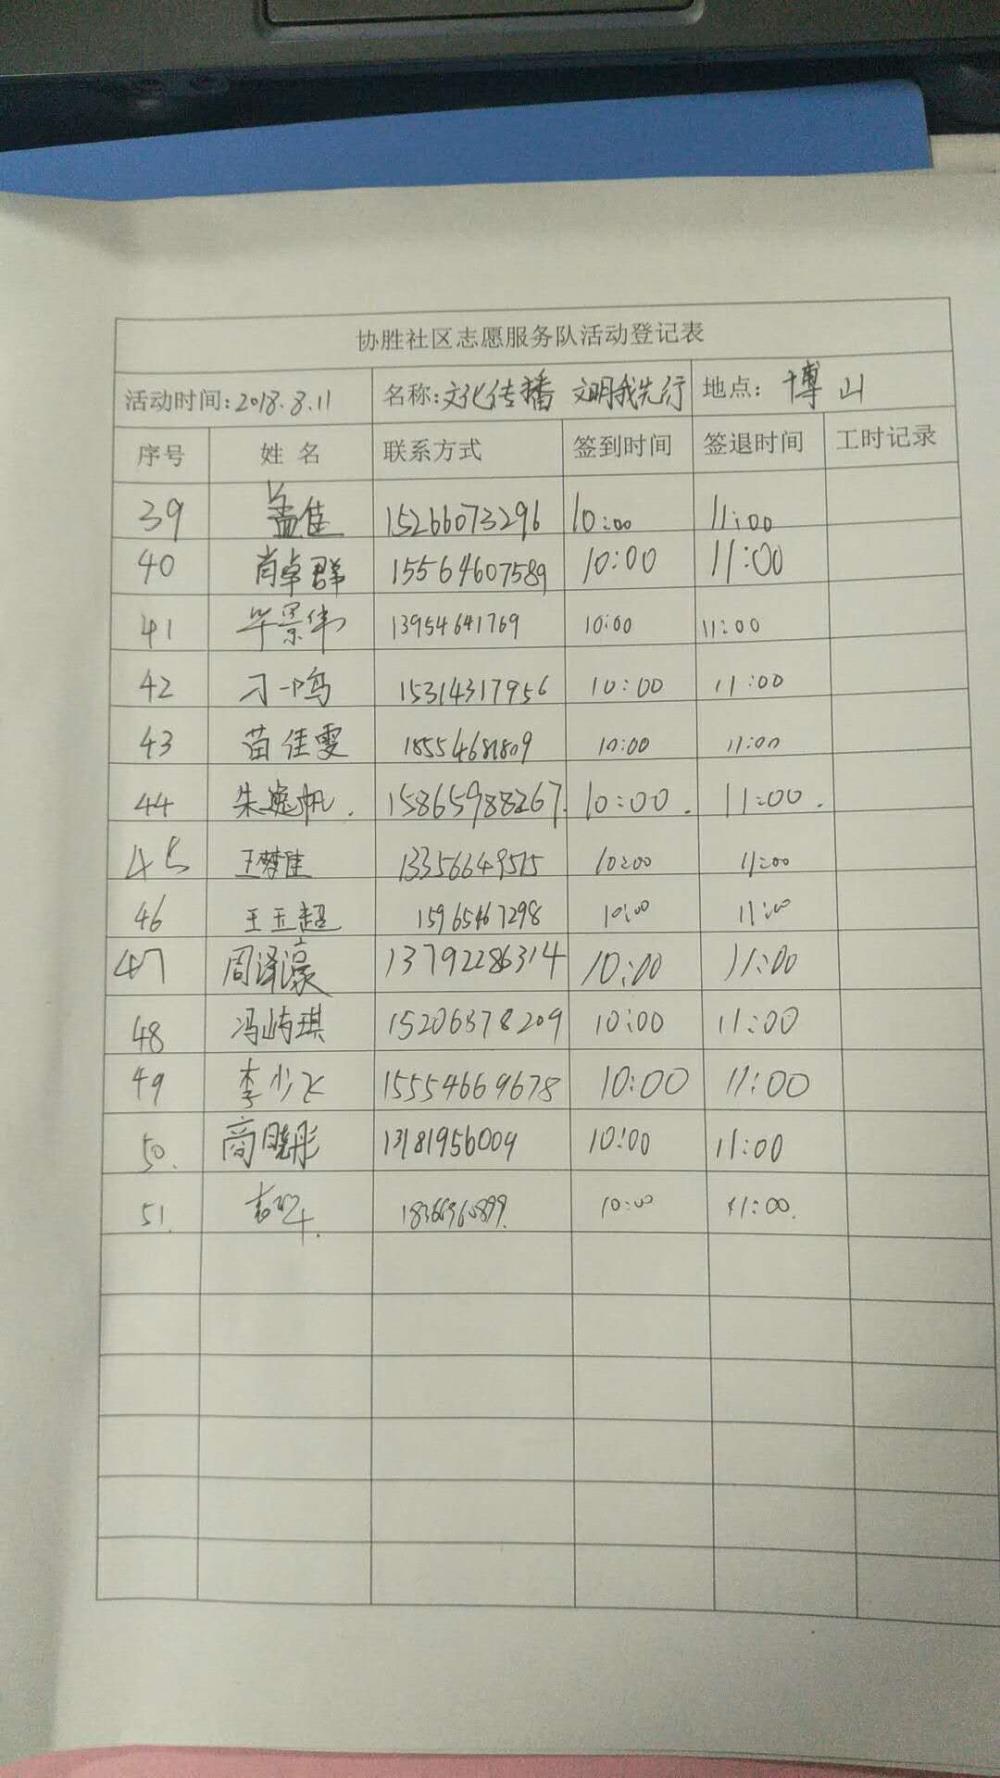 协胜社区志愿服务队活动登记表
活动时间:2018.8.11 名称:文化传播 文明我先行 地点: 博山
序号 姓名 联系方式 签到时间 签退时间 工时记录
39 盖佳 15266073296 10:00 11:00
40 肖卓群 15564607589 10:00 11:00
41 毕景伟 13954641769 10:00 11:00
42 刁一鸣 15314317956 10:00 11:00
43 苗佳雯 10:00 11:00
44 朱 帆. 15865988267. 10:00. 11:00.
45 王梦佳 13356649515 10:00 11:00
46 王玉超 15965467298 10:00 11:00
47 周泽濠 13792286314 10:00 11:00
48 冯屿琪 15206378209 10:00 11:00
49 李少飞 15554669678 10:00 11:00
50. 商晓彤 13181956009 10:00 11:00
51. 10:00 11:00.